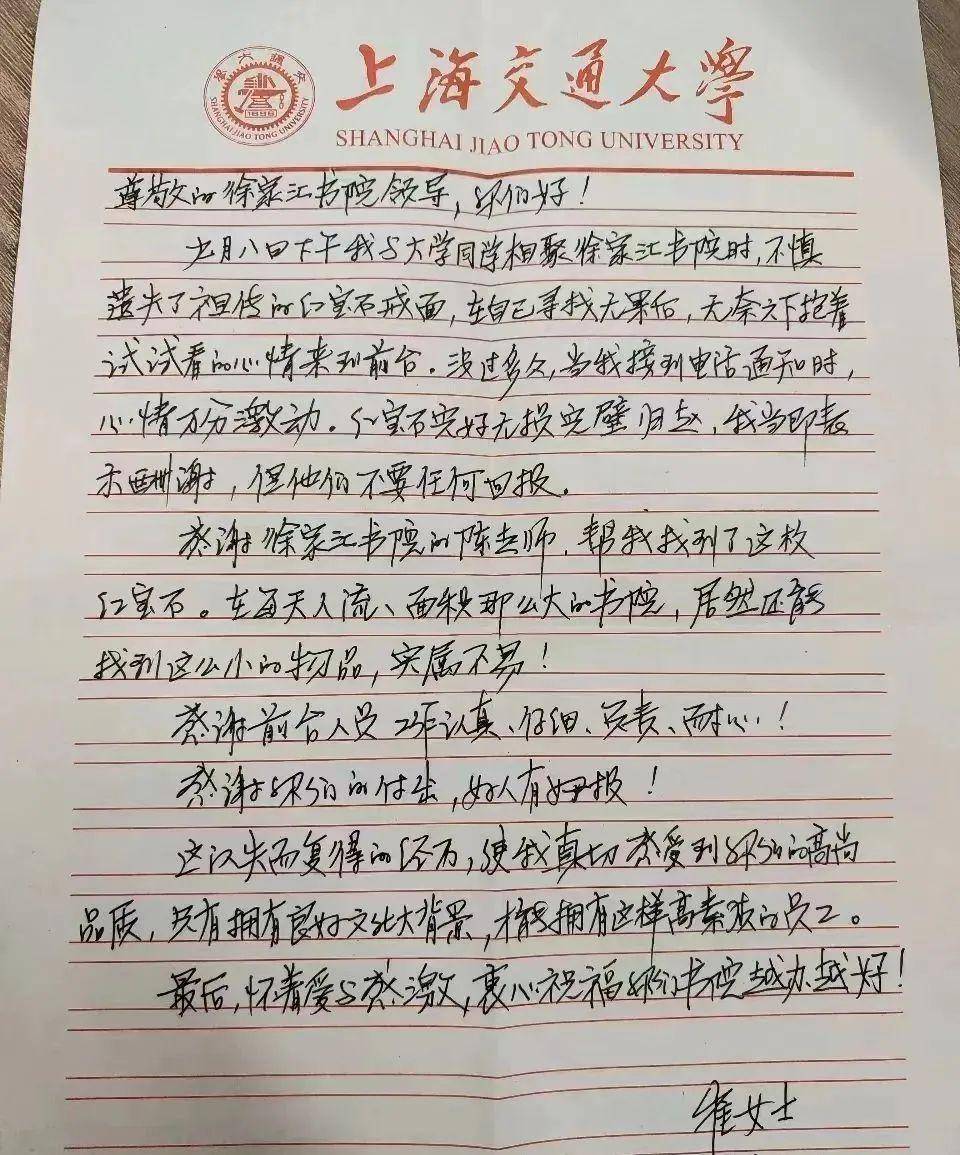 交通大學
SHANGHAI JIAO TONG UNIVERSITY
1896
上海交通大學
SHANGHAI JIAO TONG UNIVERSITY
尊敬的徐家汇书院领导，你们好！
月八日下午我与大学同学相聚徐家汇书院时，不慎
遗失了祖传的红宝石戒面，在自己寻找无果后，无奈之下抱着
试试看的心情来到前台。没过多久，当我接到电话通知时，
心情万分激动。红宝石完好无损完璧归赵，我当即表
示酬谢，但他们不要任何回报。
感谢徐家汇书院的陈老师，帮我找到了这枚
红宝石。在每天人流、面积那么大的书院，居然还能
找到这么小的物品，实属不易！
感谢前台人员工作认真、仔细、负责、耐心！
感谢你们的付出，好人有好报！
这次失而复得的经历，使我真切感受到你们的高尚
品质，只有拥有良好文化大背景，才能拥有这样高素质的员工。
最后，怀着爱与感激，衷心祝福你们书院越办越好！
崔女士